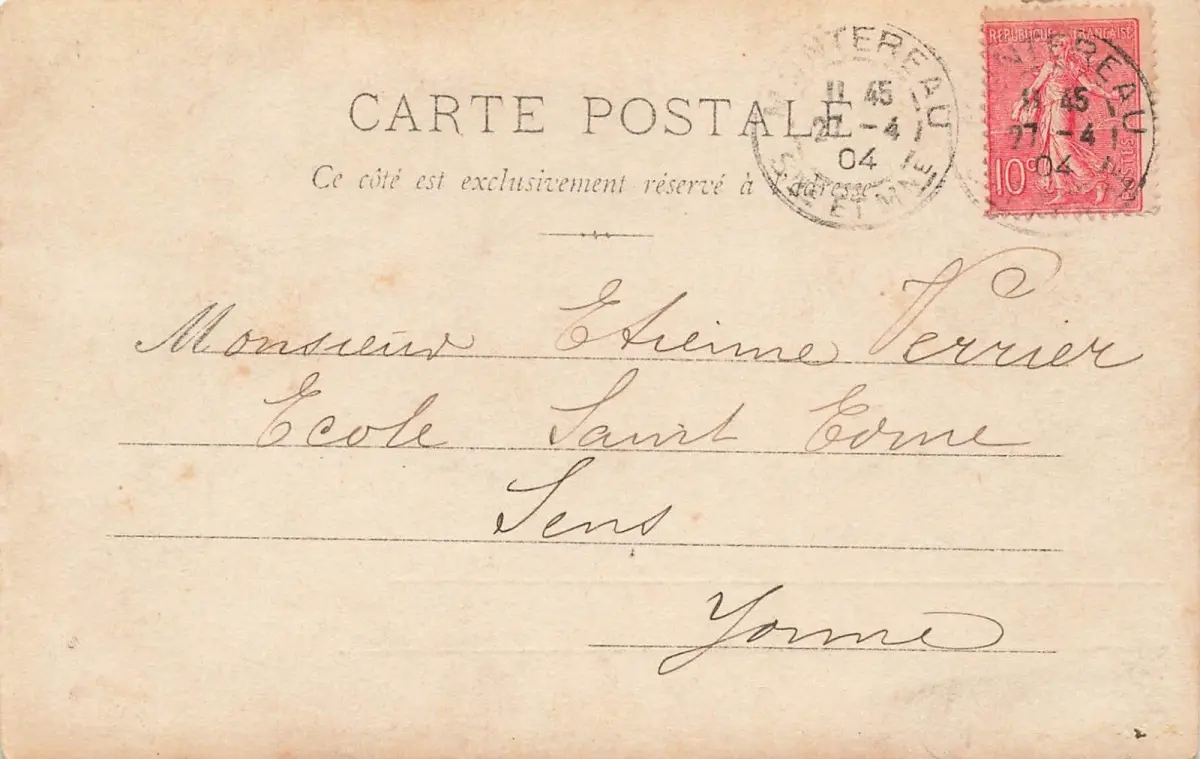 CARTE POSTALE
Ce côté est exclusivement réservé à l'adresse
MONTEREAU
11 45
27 -4
04
SNE ET MNE
REPUBLIQUE FRANÇAISE
10c
POSTES
MONTEREAU
11 45
27 -4
04
Monsieur Etienne Verrier
Ecole Saint Edme
Sens
Yonne